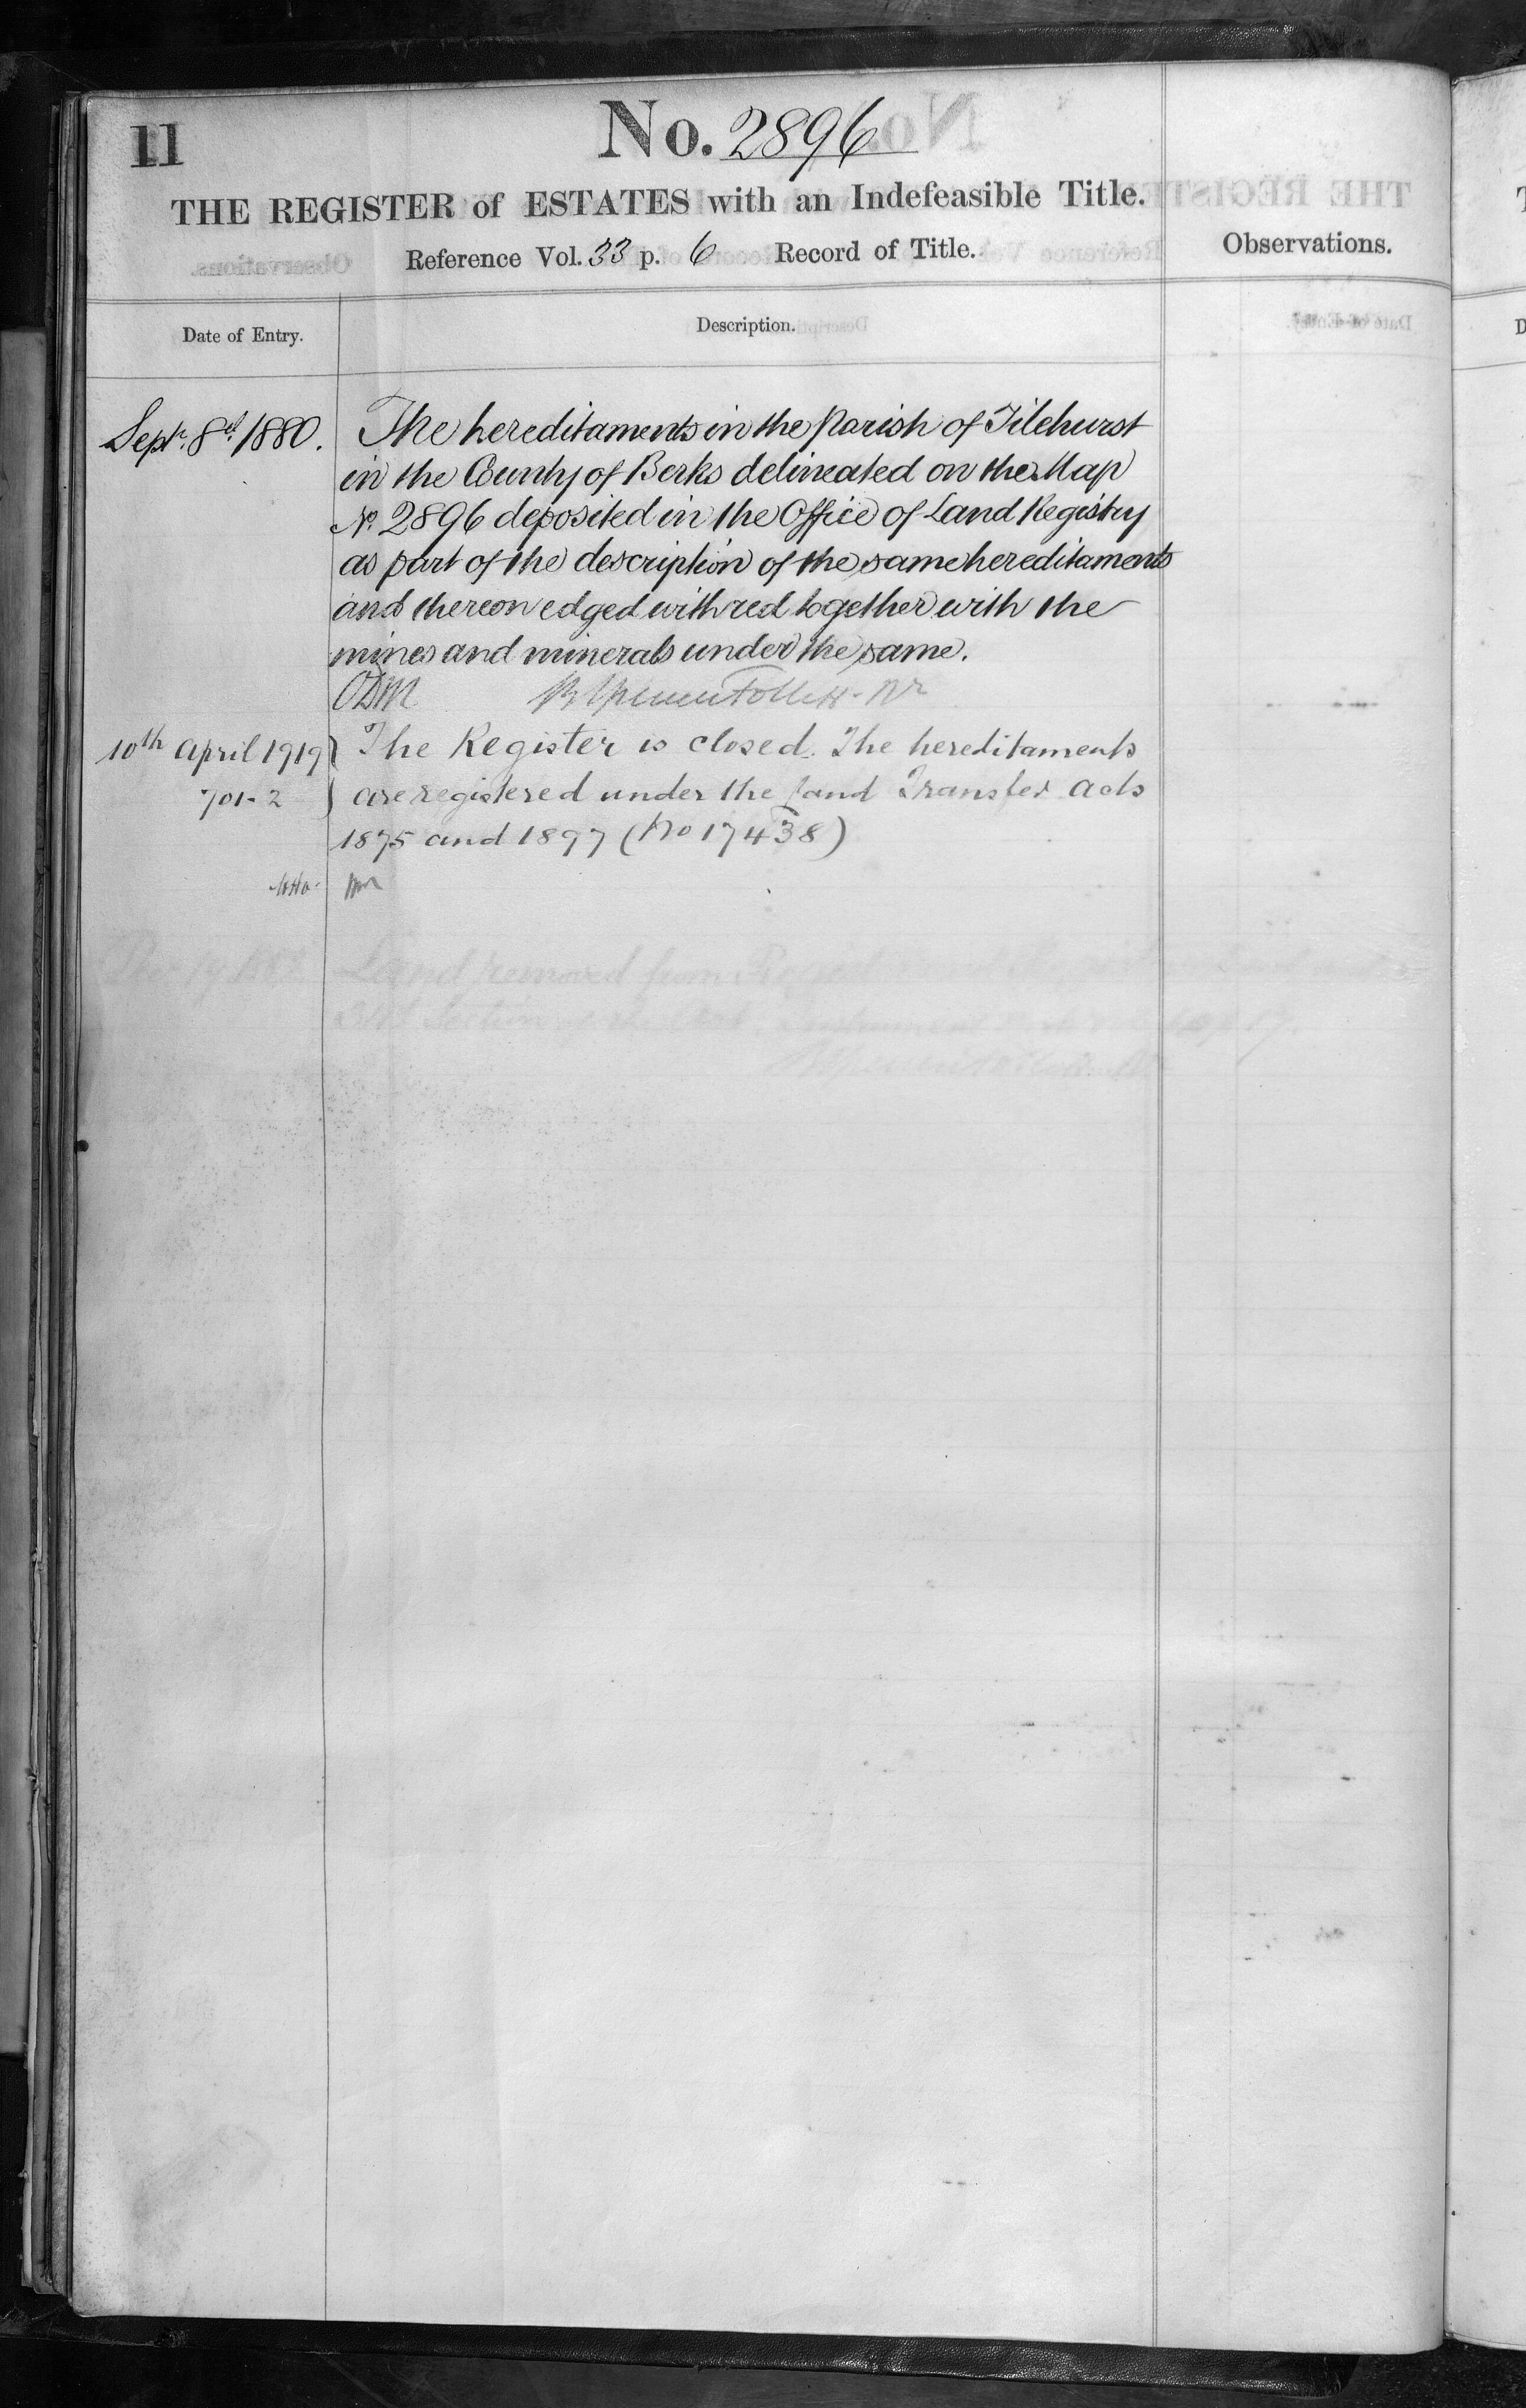 11
No. 2896
THE REGISTER of ESTATES with an Indefeasible Title.
Reference Vol. 33 p. 6 Record of Title.
Observations.
Date of Entry.
Description.
Septr. 8th 1880.
The hereditaments in the Parish of Tilehurst
in the County of Berks delineated on the Map
No. 2896 deposited in the Office of Land Registry
as part of the description of the same hereditaments
and thereon edged with red together with the
mines and minerals under the same.
10th April 1919
701-2
The Register is closed. The hereditaments
are registered under the Land Transfer Acts
1875 and 1897 (No 17438)
Land removed from